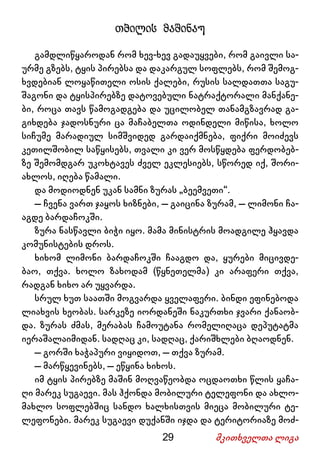 თმილის მკშინკე
გამდლიწყაროდან რომ ხევ-ხევ გადაუყვები, რომ გაივლი სა-
ურმე გზებს, ტყის პირებსა და დაკარგულ სოფლებს, რომ შემოგ-
ხვდებიან ლოყაწითელი ოსის ქალები, რუსის სალდათთა საგუ-
შაგონი და ტყისპირებზე დატოვებული ნატრაქტორალი მანქანე-
ბი, როცა თავს წამოგადგება და უცილობელ თანამგზავრად გა-
გიხდება ჯადოსნური ცა მაჩაბელთა ოდინდელი მიწისა, ხოლო
სიჩუმე მარადიულ სიმშვიდედ გარდაიქმნება, ფიქრი მოიძევს
კეთილშობილ საწყისებს, თვალი კი ვერ მოსწყდება ფერდობებ-
ზე შემომდგარ უკოხტავეს ძველ ეკლესიებს, სწორედ იქ, შორი-
ახლოს, იღება წამალი.
და მოდიოდნენ უკან სამნი ზურას „ბეემვეთი“.
— ჩვენა ვართ ჯაყოს ხიზნები, — გაიცინა ზურამ, — ლიმონი ჩა-
აგდე ბარდაჩოკში.
ზურა ნასწავლი ბიჭი იყო. მამა მინისტრის მოადგილე ჰყავდა
კომუნისტების დროს.
ხიხომ ლიმონი ბარდაჩოკში ჩააგდო და, ყურები მიცივდე-
ბაო, თქვა. ხოლო ზახოდამ (წყნეთელმა) კი არაფერი თქვა,
რადგან ხიხო არ უყვარდა.
სრულ ხუთ საათში მოგვარდა ყველაფერი. ბინდი ეფინებოდა
ლიახვის ხეობას. სარკეზე იორდანეში ნაკურთხი ჯვარი ქანაობ-
და. ზურას ძმას, მერაბას ჩამოუტანა რომელიღაცა დეპუტატმა
იერაშალაიმიდან. სადღაც კი, სადღაც, ქარიშხლები ბღაოდნენ.
— გორში ხაჭაპური ვიყიდოთ, — თქვა ზურამ.
— მარწყევინებს, — ეწყინა ხიხოს.
იმ ტყის პირებზე მაშინ მოღვაწეობდა ოცდაოთხი წლის ყაჩა-
ღი მარეკ სუგაევი. მას ჰქონდა მობილური ტელეფონი და ახლო-
მახლო სოფლებშიც სანდო ხალხისთვის მიეცა მობილური ტე-
ლეფონები. მარეკ სუგაევი დუქანში იჯდა და ტერიტორიაზე მოძ-
29 მკითხველთა ლიგა